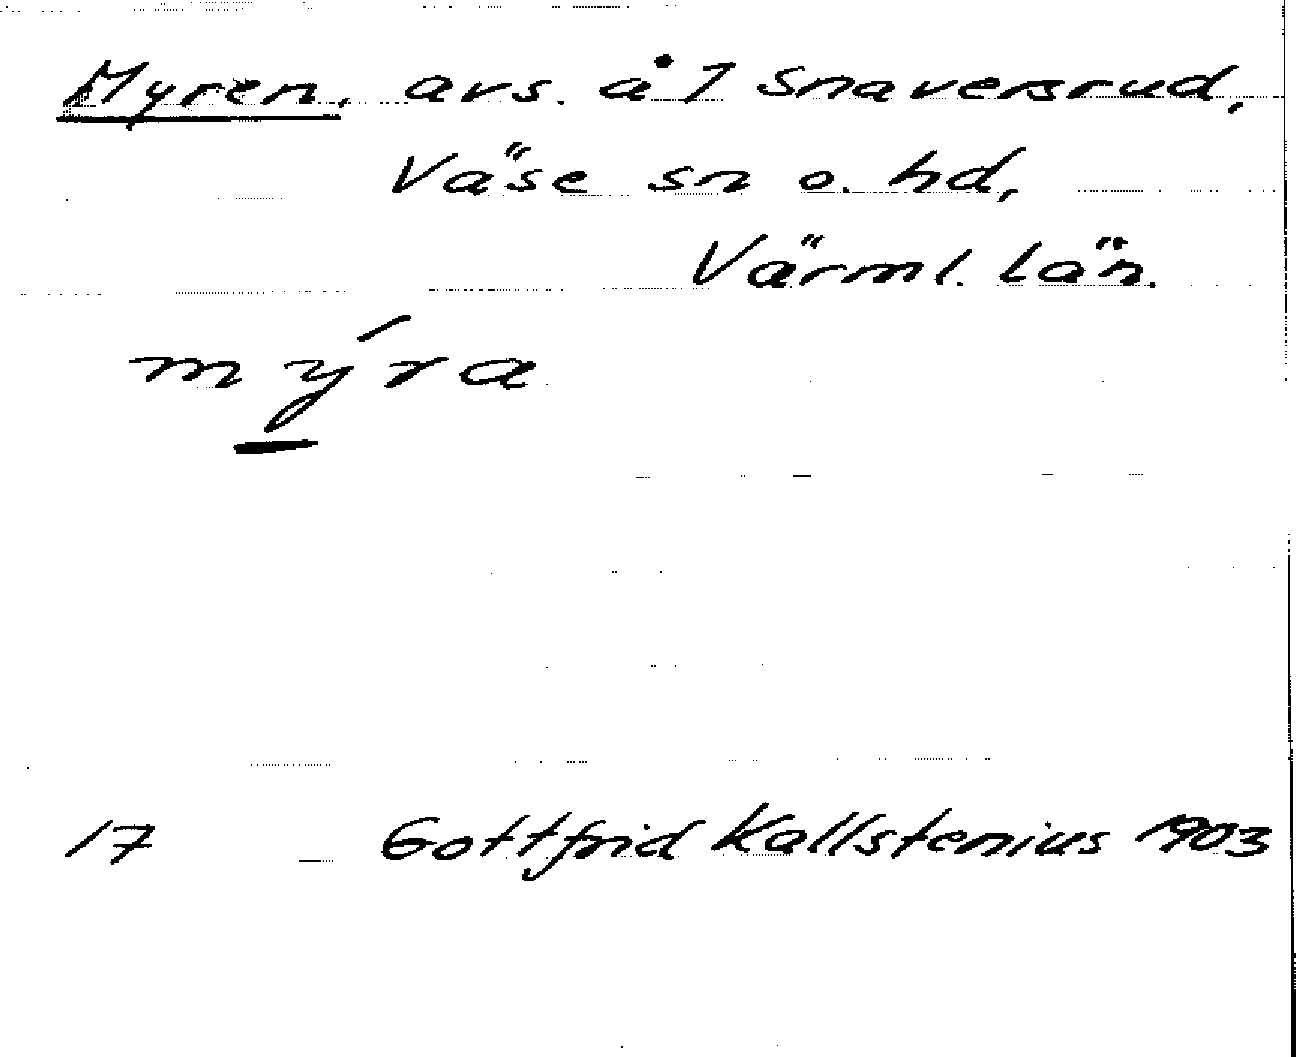 Myren, avs. å 1 Snaversrud,
Väse sn o. hd,
Värml. län.
mýra
17 Gottfrid Kallstenius 1903